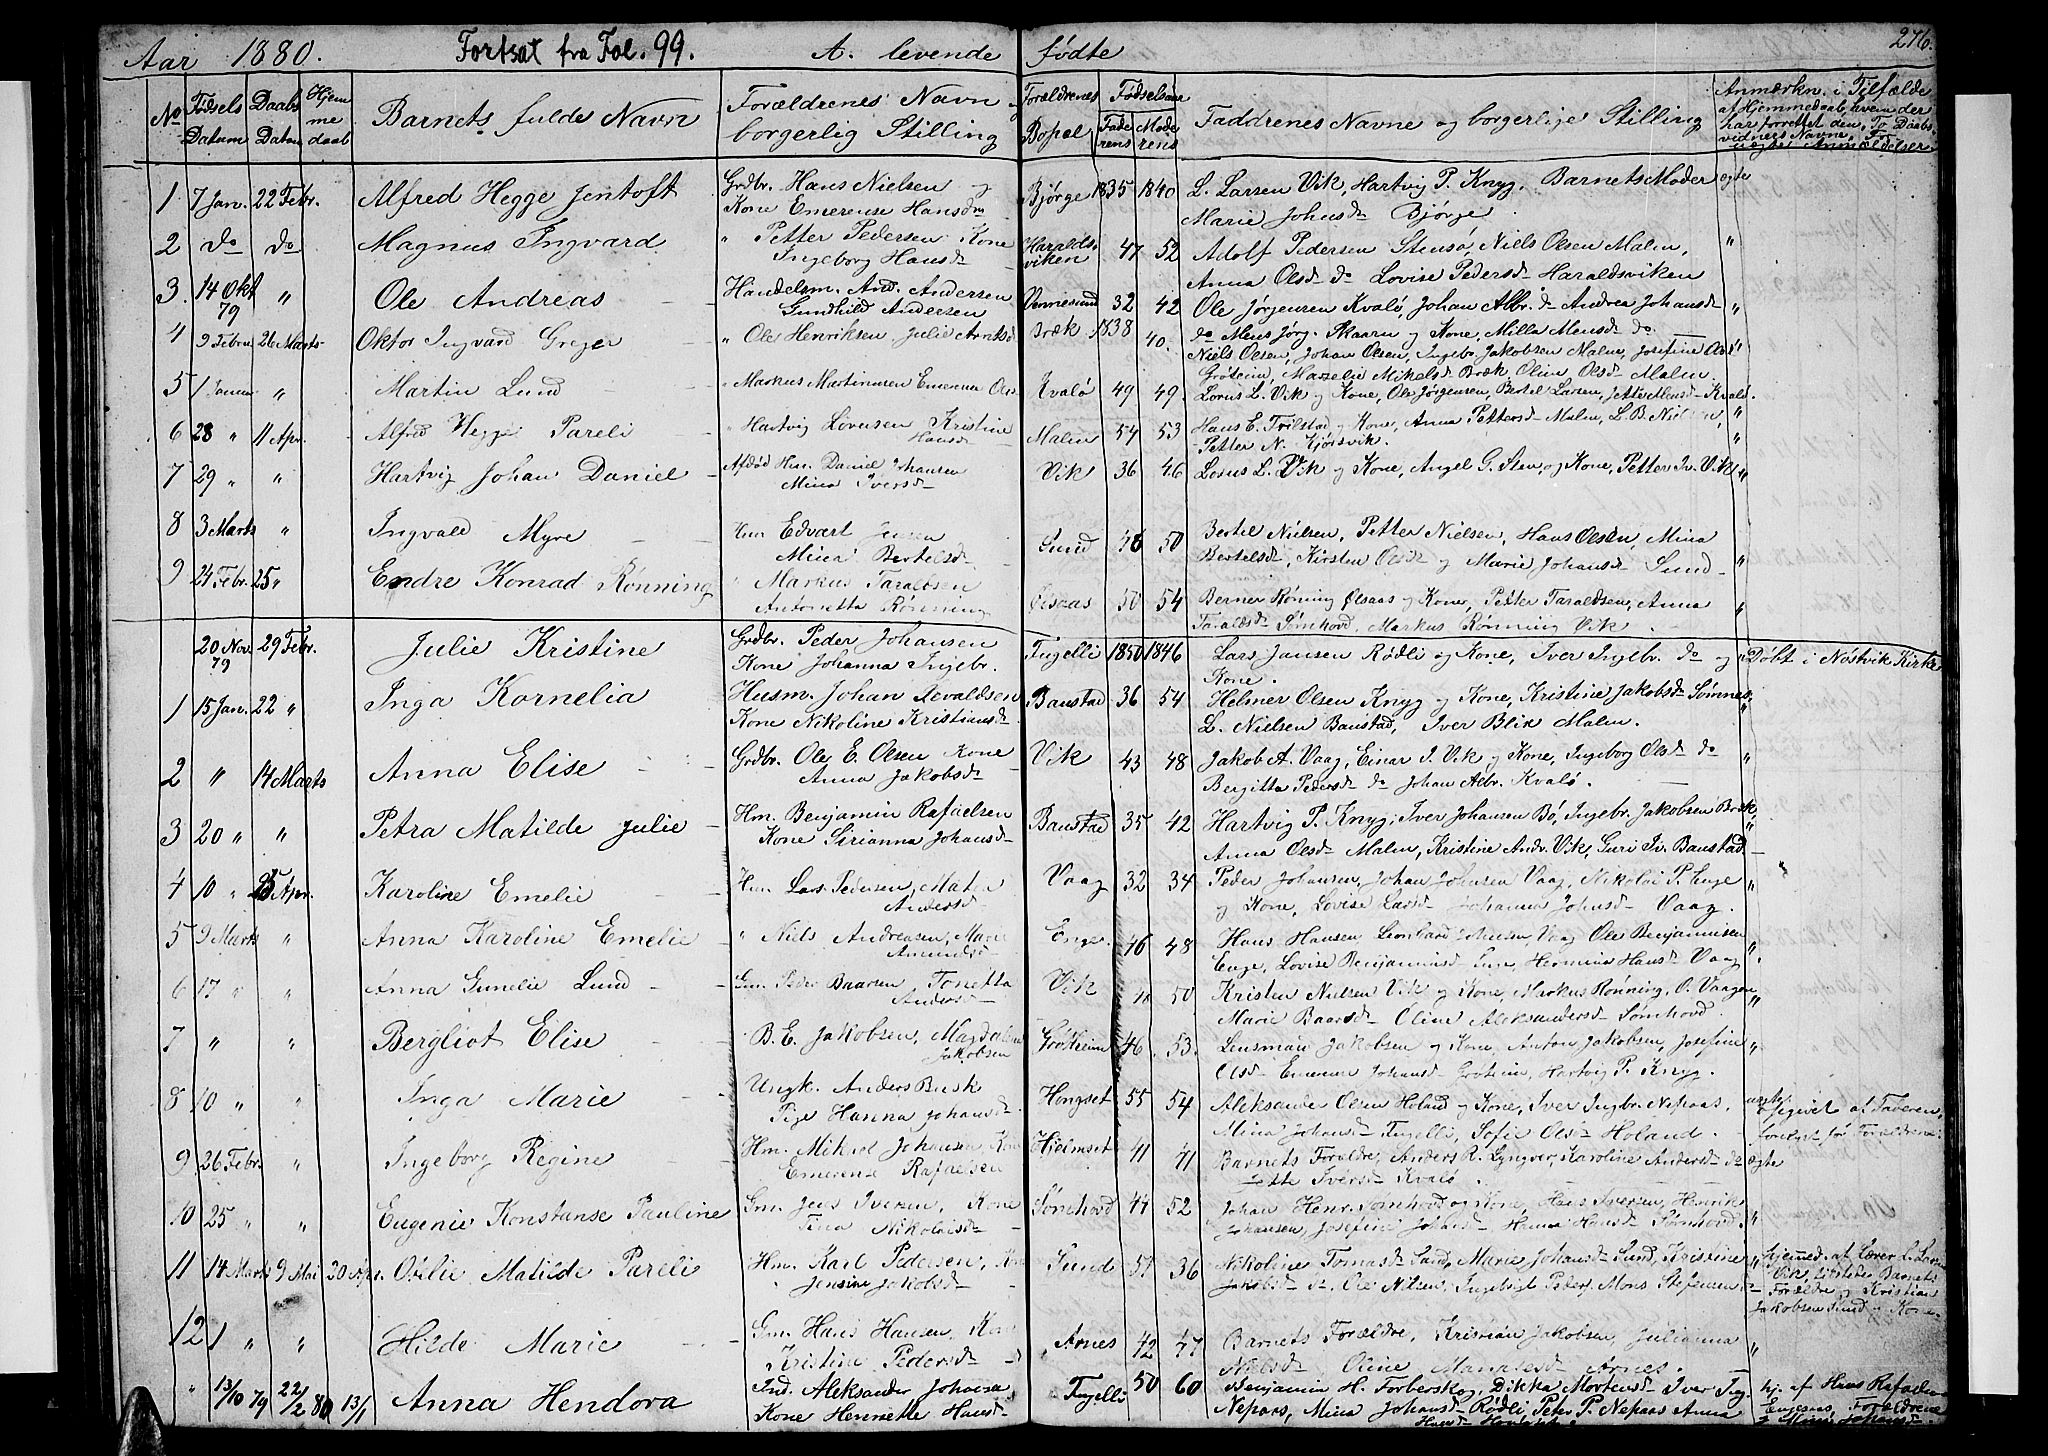 Aar 1880. Fortsat fra Fol. 99. A. levende fødte 276.
No Fødsels Datum Daabs Datum Hjemme daab Barnets fulde Navn Forældrenes Navn og borgerlig Stilling Forældrenes Bopæl Fødselsaar Faderens Moderens Faddrenes Navne og borgerlige Stilling Anmærkn. i Tilfælde af Hjemmedaab, hvem der har forrettet den, To Daabs vidnes Navne,
1 7 Jan. 22 Febr. Alfred Hegge Jentoft Grdbr. Hans Nielsen og Bjørge 1835 1840 L. Larsen Vik, Hartvig P. Knyg, Barnets Moder ægte
Kone Emerense Hansd. Marie Johnsd. Bjørge.
2 do do Magnus Ingvard " Petter Pedersen Kone Haralds- 47 52 Adolf Pedersen Stensø, Niels Olsen Malm, "
Ingeborg Hansd. viken Anna Olsd. do Lovise Pedersd. Haraldsviken
3. 14 Okt 79 " Ole Andreas Handelsm. And. Andersen Vennesund 32 42 Ole Jørgensen Kvalø, Johan Albr. do Andrea Johansd. "
Gundhild Andersen do Mens Jørg. Skaarn og Kone, Milla Mensd. do.
4 9 Febru 26 Marts Oktor Ingvard Greger " Ole Henriksen, Julie Arntsd. Bræk 1838 40. Niels Olsen, Johan Olsen, Ingebr. Jakobsen Malm, Josefine Olsd. "
Mikelsd. Bræk, Oline Olsd. Malm.
5 1 Januar " Martin Lund " Markus Martinusen Kvalø 49 49. Lorns L. Vik og Kone, Ole Jørgensen, Bertel Larsen, Jette Mensd. Kvalø.
6 28 " 11 Apr. Alfred Hegge Pareli " Hartvig Lornsen, Kristine Hansd. Malm 54 53 Hans E. og Kone, Anna Pettersd. Malm, L. B. Nielsen, "
Petter N. Kjørsvik.
7 29 " " Hartvig Johan Daniel Afdød Hm. Daniel Johansen Vik 36 46 Lorns L. Vik og Kone, Angel G. Sten og Kone, Petter Iv. Vik "
Mina Iversd.
8 3 Marts " Ingvald Myre Hm Edvart Jensen Sund 46 50 Bertel Nielsen, Petter Nielsen, Hans Olsen, Mina
Mina Bertelsd. Bertelsd., Kirsten Olsd. og Marie Johansd. Sund "
9 24 Febr. 25 " Endre Konrad Rønning " Markus Taraldsen 50 54 Berner Rønning Ølsaas og Kone, Petter Taraldsen, Anna
Antonetta Rønning Taraldsd. Sømhovd, Markus Rønning Vik. "
20 Nov. 79 29 Febr. Julie Kristine Grdbr. Peder Johansen Fugelli 1850 1846 Lars Jansen Rødli og Kone, Iver Ingebr. do og " Døbt i Nøstvik Kirke
Kone Johanna Ingebr. Kone.
1 15 Jan. 22 " Inga Kornelia Husm. Johan Sevaldsen Baustad 36 54 Helmer Olsen Knyg og Kone, Kristine Jakobsd. Sømnes,
Kone Nikoline Kristiansd. L. Nielsen Baustad, Iver Blik Malm.
2 " 14 Marts Anna Elise Grdbr. Ole E. Olsen Kone Vik 43 48 Jakob A. Vaag, Einar J. Vik og Kone, Ingeborg Olsd. do "
Anna Jakobsd. Bergitta Pedersd. do Johan Albr. Kvalø.
3 20 " " Petra Matilde Julie Hm. Benjamin Rafaelsen Baustad 35 42 Hartvig P. Knyg, Iver Johansen Bø, Ingebr. Jakobsen Bræk,
Kone Sirianna Johansd. Anna Olsd. Malm, Kristine Andr. Vik, Guri Iv. Baustad
4 10 " 25 Apr. Karoline Emelie Hm Lars Pedersen, Maten Andersd. Vaag 32 34 Peder Johansen, Johan Johnsen Vaag, Nikolai P. Enge "
og Kone, Lovise Larsd. Johanna Johnsd. Vaag.
5 9 Marts " Anna Karoline Emelie " Niels Andreasen, Marie Enge 46 48 Hans Hansen Leonhard Johnsen Vaag Ole Benjaminsen
Enge, Lovise Benjaminsd. Enge, Hansd. Vaag "
6 17 " " Anna Gunelie Lund Gm. Peder Baarsen Tonetta Andersd. Vik 50 Kristen Nielsen Vik og Kone, Markus Rønning, O. Vaagen "
Marie Baarsd. Oline Aleksandersd. Sømhovd.
7 " " Bergliot Elise B. E. Jakobsen, Magdalena Jakobsen Grøtheim 46. 53. Lensmand Jakobsen og Kone, Anton Jakobsen, Josefine "
Olsd. Johansd. Grøtheim, Hartvig P. Knyg.
8 10 " " Inga Marie Ungk. Anders Busk Hongset 55 54 Aleksander Olsen Holand og Kone, Iver Ingbr. Nepaas, uægte. opgivet af Faderen,
Pige Hanna Johansd. Mina Johansd. Fugelli, Sofie Olsd. Holand. for Forældrene
9 26 Febr. " Ingeborg Regine Hm. Mikael Johansen, Kone Hjelmset 41 41 Barnets Forældre, Anders R. Lyngver, Karoline Andersd. do ægte
Emerense Rafaelsen Jette Iversd. Kvalø
10 25 " " Eugenie Konstanse Pauline Gm. Jens Iversen, Kone Sømhovd 44 52 Johan Henr. Sømhovd og Kone, Hans Iversen, Henrik "
Tina Nikolaisd. Johansen, Josefine Johansd. Hanna Hansd. Sømhovd.
11 14 Marts 9 Mai 30 Apr. Ovelie Matilde Pareli Hm. Karl Pedersen, Kone Sund 57 36 Nikoline Tomasd. Sund, Marie Johansd. Sund Kristine " hjemmed. af Lærer L. Larsen
Jensine Jakobsd. Jakobsd. do. Ole Nilsen, Ingebrigt Peders, Mons Stefensen Vik, tilstede Barnets
Forældre og Kristian
Jakobsen Sund og Kone
12 1 " " Hilde Marie Gm. Hans Hansen, Kone Arnes 42 47 Barnets Forældre, Kristian Jakobsen, Julianna "
Kristine Pedersd. Nielsd. Oline Arnes.
" 13/10 79 22/2 80 13/1 Anna Hendora Ind. Aleksander Johansen Fugelli 50 60 Benjamin H. Forberskog, Dikka Mortensd. Iver Ing. hj. af Hans Rafaelsen
Kone Hennette Hansd. Nepaas, Mina Johansd. Rødli Peter P. Nepaas Anna Forældrene
Hansd. og Mina Johansd.